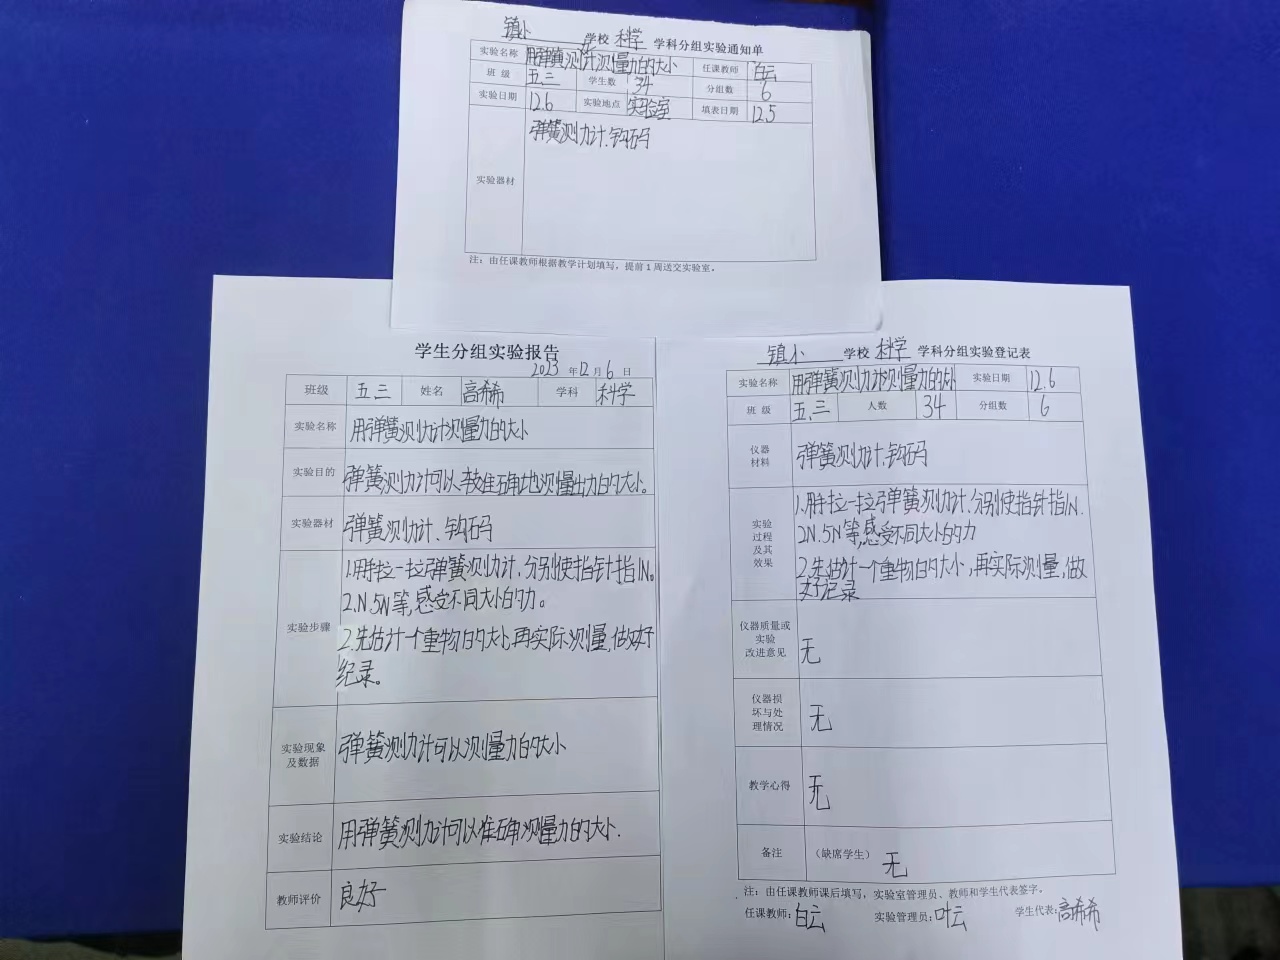 镇小 学校 科学 学科分组实验通知单
实验名称 用弹簧测力计测量力的大小 任课教师 白云
班 级 五、三 学生数 34 分组数 6
实验日期 12.6 实验地点 实验室 填表日期 12.5
实验器材 弹簧测力计、钩码
注：由任课教师根据教学计划填写，提前1周送交实验室。
学生分组实验报告
2023 年 12 月 6 日
班级 五、三 姓名 高希希 学科 科学
实验名称 用弹簧测力计测量力的大小
实验目的 弹簧测力计可以较准确地测量出力的大小。
实验器材 弹簧测力计、钩码
实验步骤
1.用手拉一拉弹簧测力计，分别使指针指1N。
2.N.5N等，感受不同大小的力。
2.先估计一个重物的大小，再实际测量，做好
纪录。
实验现象
及数据
弹簧测力计可以测量力的大小
实验结论 用弹簧测力计可以准确测量力的大小.
教师评价 良好
镇小 学校 科学 学科分组实验登记表
实验名称 用弹簧测力计测量力的大小 实验日期 12.6
班 级 五、三 人数 34 分组数 6
仪器
材料
弹簧测力计、钩码
实验
过程
及其
效果
1.用手拉一拉弹簧测力计，分别使指针指1N.
2N.5N等，感受不同大小的力
2.先估计一个重物的大小，再实际测量，做
好记录
仪器质量或
实验
改进意见
无
仪器损
坏与处
理情况
无
教学心得 无
备注 （缺席学生） 无
注：由任课教师课后填写，实验室管理员、教师和学生代表签字。
任课教师：白云 实验管理员：叶云 学生代表：高希希